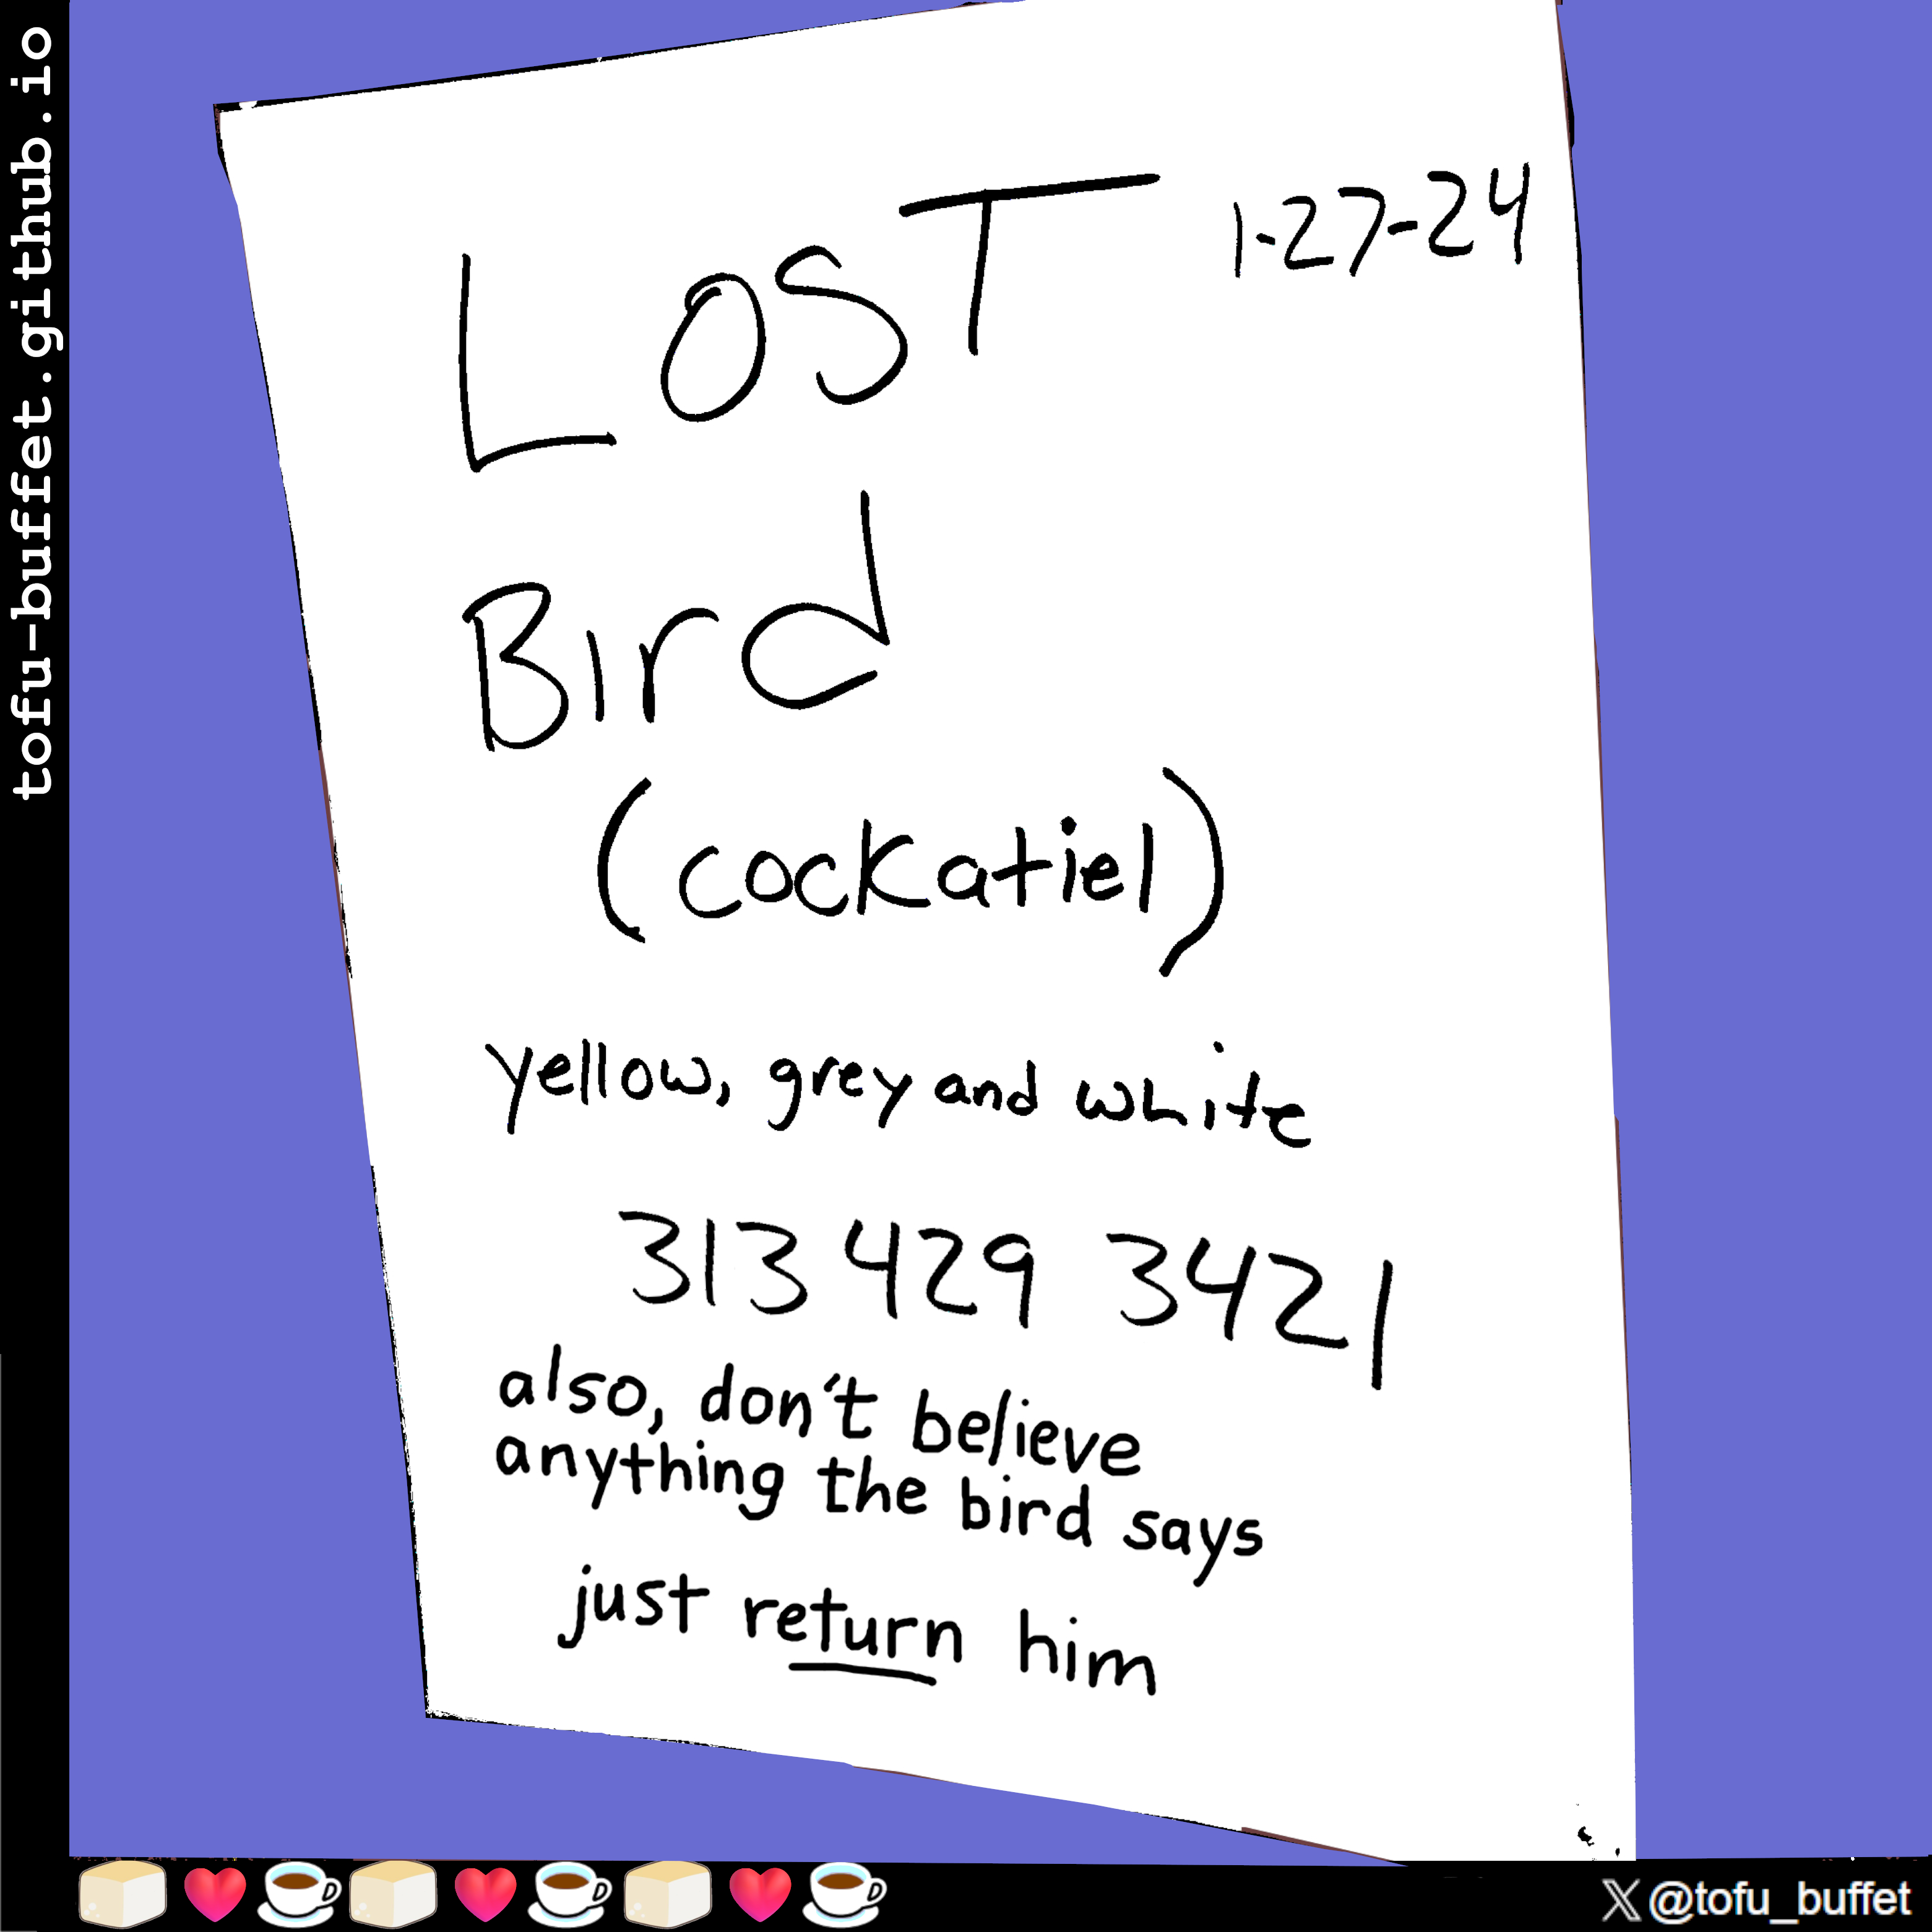 tofu-buffet.github.io
LOST
1-27-24
Bird
(cockatiel)
yellow, grey and white
313 429 3421
also, don't believe
anything the bird says
just return him
X @tofu_buffet